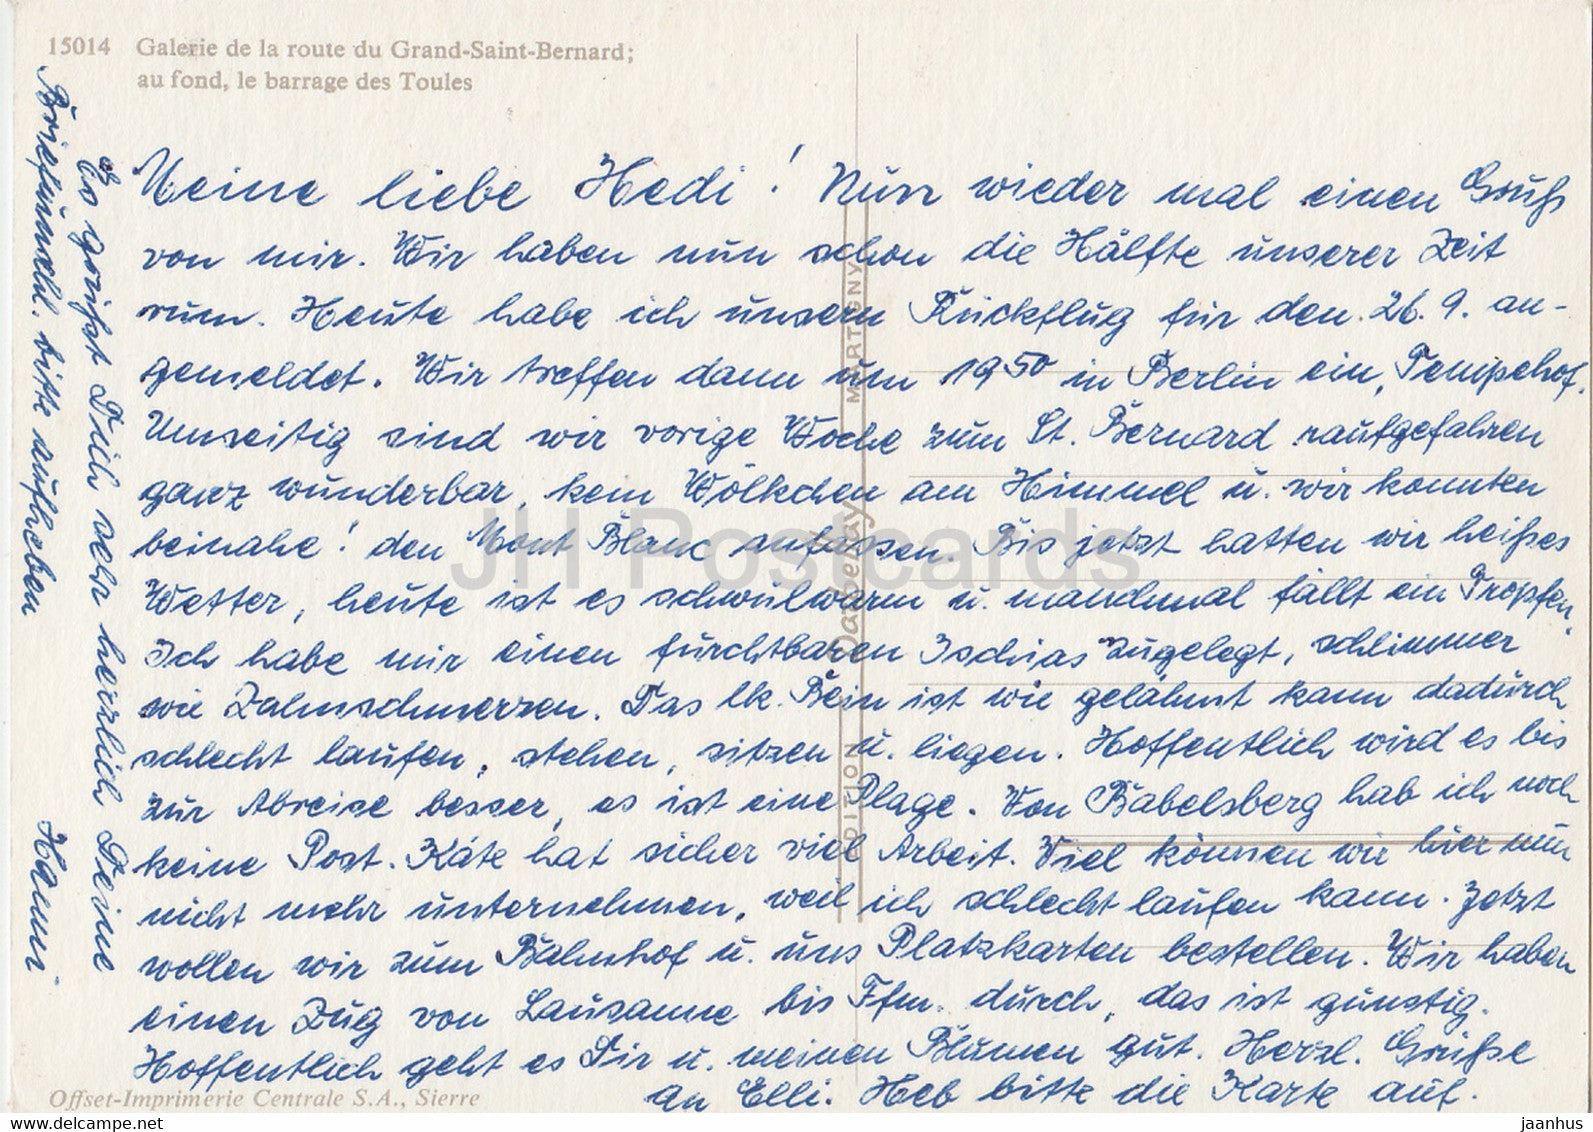 15014 Galerie de la route du Grand-Saint-Bernard;
au fond, le barrage des Toules
Meine liebe Hedi! Nun wieder mal einen Gruß
von mir. Wir haben nun schon die Hälfte unserer Zeit
rum. Heute habe ich unsern Rückflug für den 26. 9. an-
gemeldet. Wir treffen dann um 19 50 in Berlin ein, Tempelhof.
Umseitig sind wir vorige Woche zum St. Bernard raufgefahren
ganz wunderbar, kein Wölkchen am Himmel u. wir konnten
beinahe! den Mont Blanc anfassen. Bis jetzt hatten wir heißes
Wetter, heute ist es schwülwarm u. manchmal fällt ein Tropfen.
Ich habe mir einen furchtbaren Ischias zugelegt, schlimmer
wie Zahnschmerzen. Das lk. Bein ist wie gelähmt kann dadurch
schlecht laufen, stehen, sitzen u. liegen. Hoffentlich wird es bis
zur Abreise besser, es ist eine Plage. Von Babelsberg hab ich noch
keine Post. Käte hat sicher viel Arbeit. Viel können wir hier nun
nicht mehr unternehmen, weil ich schlecht laufen kann. Jetzt
wollen wir zum Bahnhof u. uns Platzkarten bestellen. Wir haben
einen Zug von Lausanne bis Ffm. durch, das ist günstig.
Hoffentlich geht es Dir u. meinen Blumen gut. Herzl. Grüße
an Elli. Heb bitte die Karte auf.
Es grüßt Dich sehr herzlich Deine
Hanni
Briefumschl. bitte aufheben
EDITION Darbellay MARTIGNY
Offset-Imprimerie Centrale S.A., Sierre
JH Postcards
jaanhus